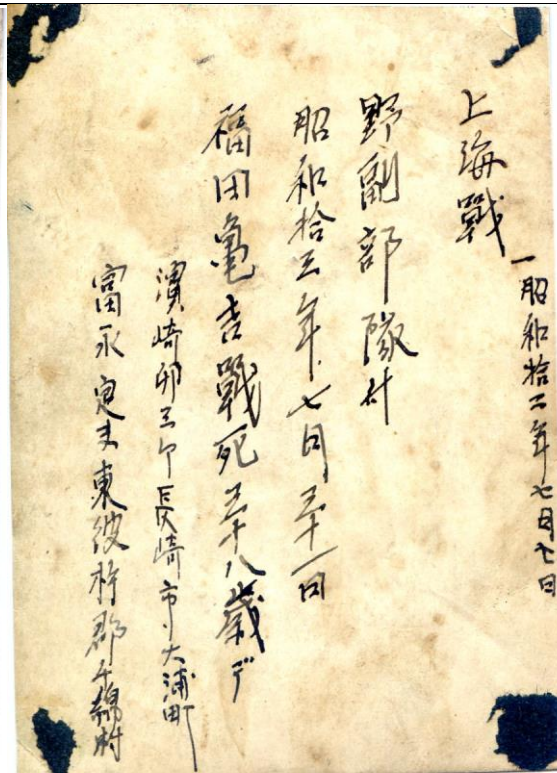 上海戰
一昭和拾二年七月七日
野副部隊
昭和拾三年七月三十一日
福田亀吉戰死三十八歳デ
濱崎卯三郎長崎市大浦町
富永定夫東彼杵郡千綿村